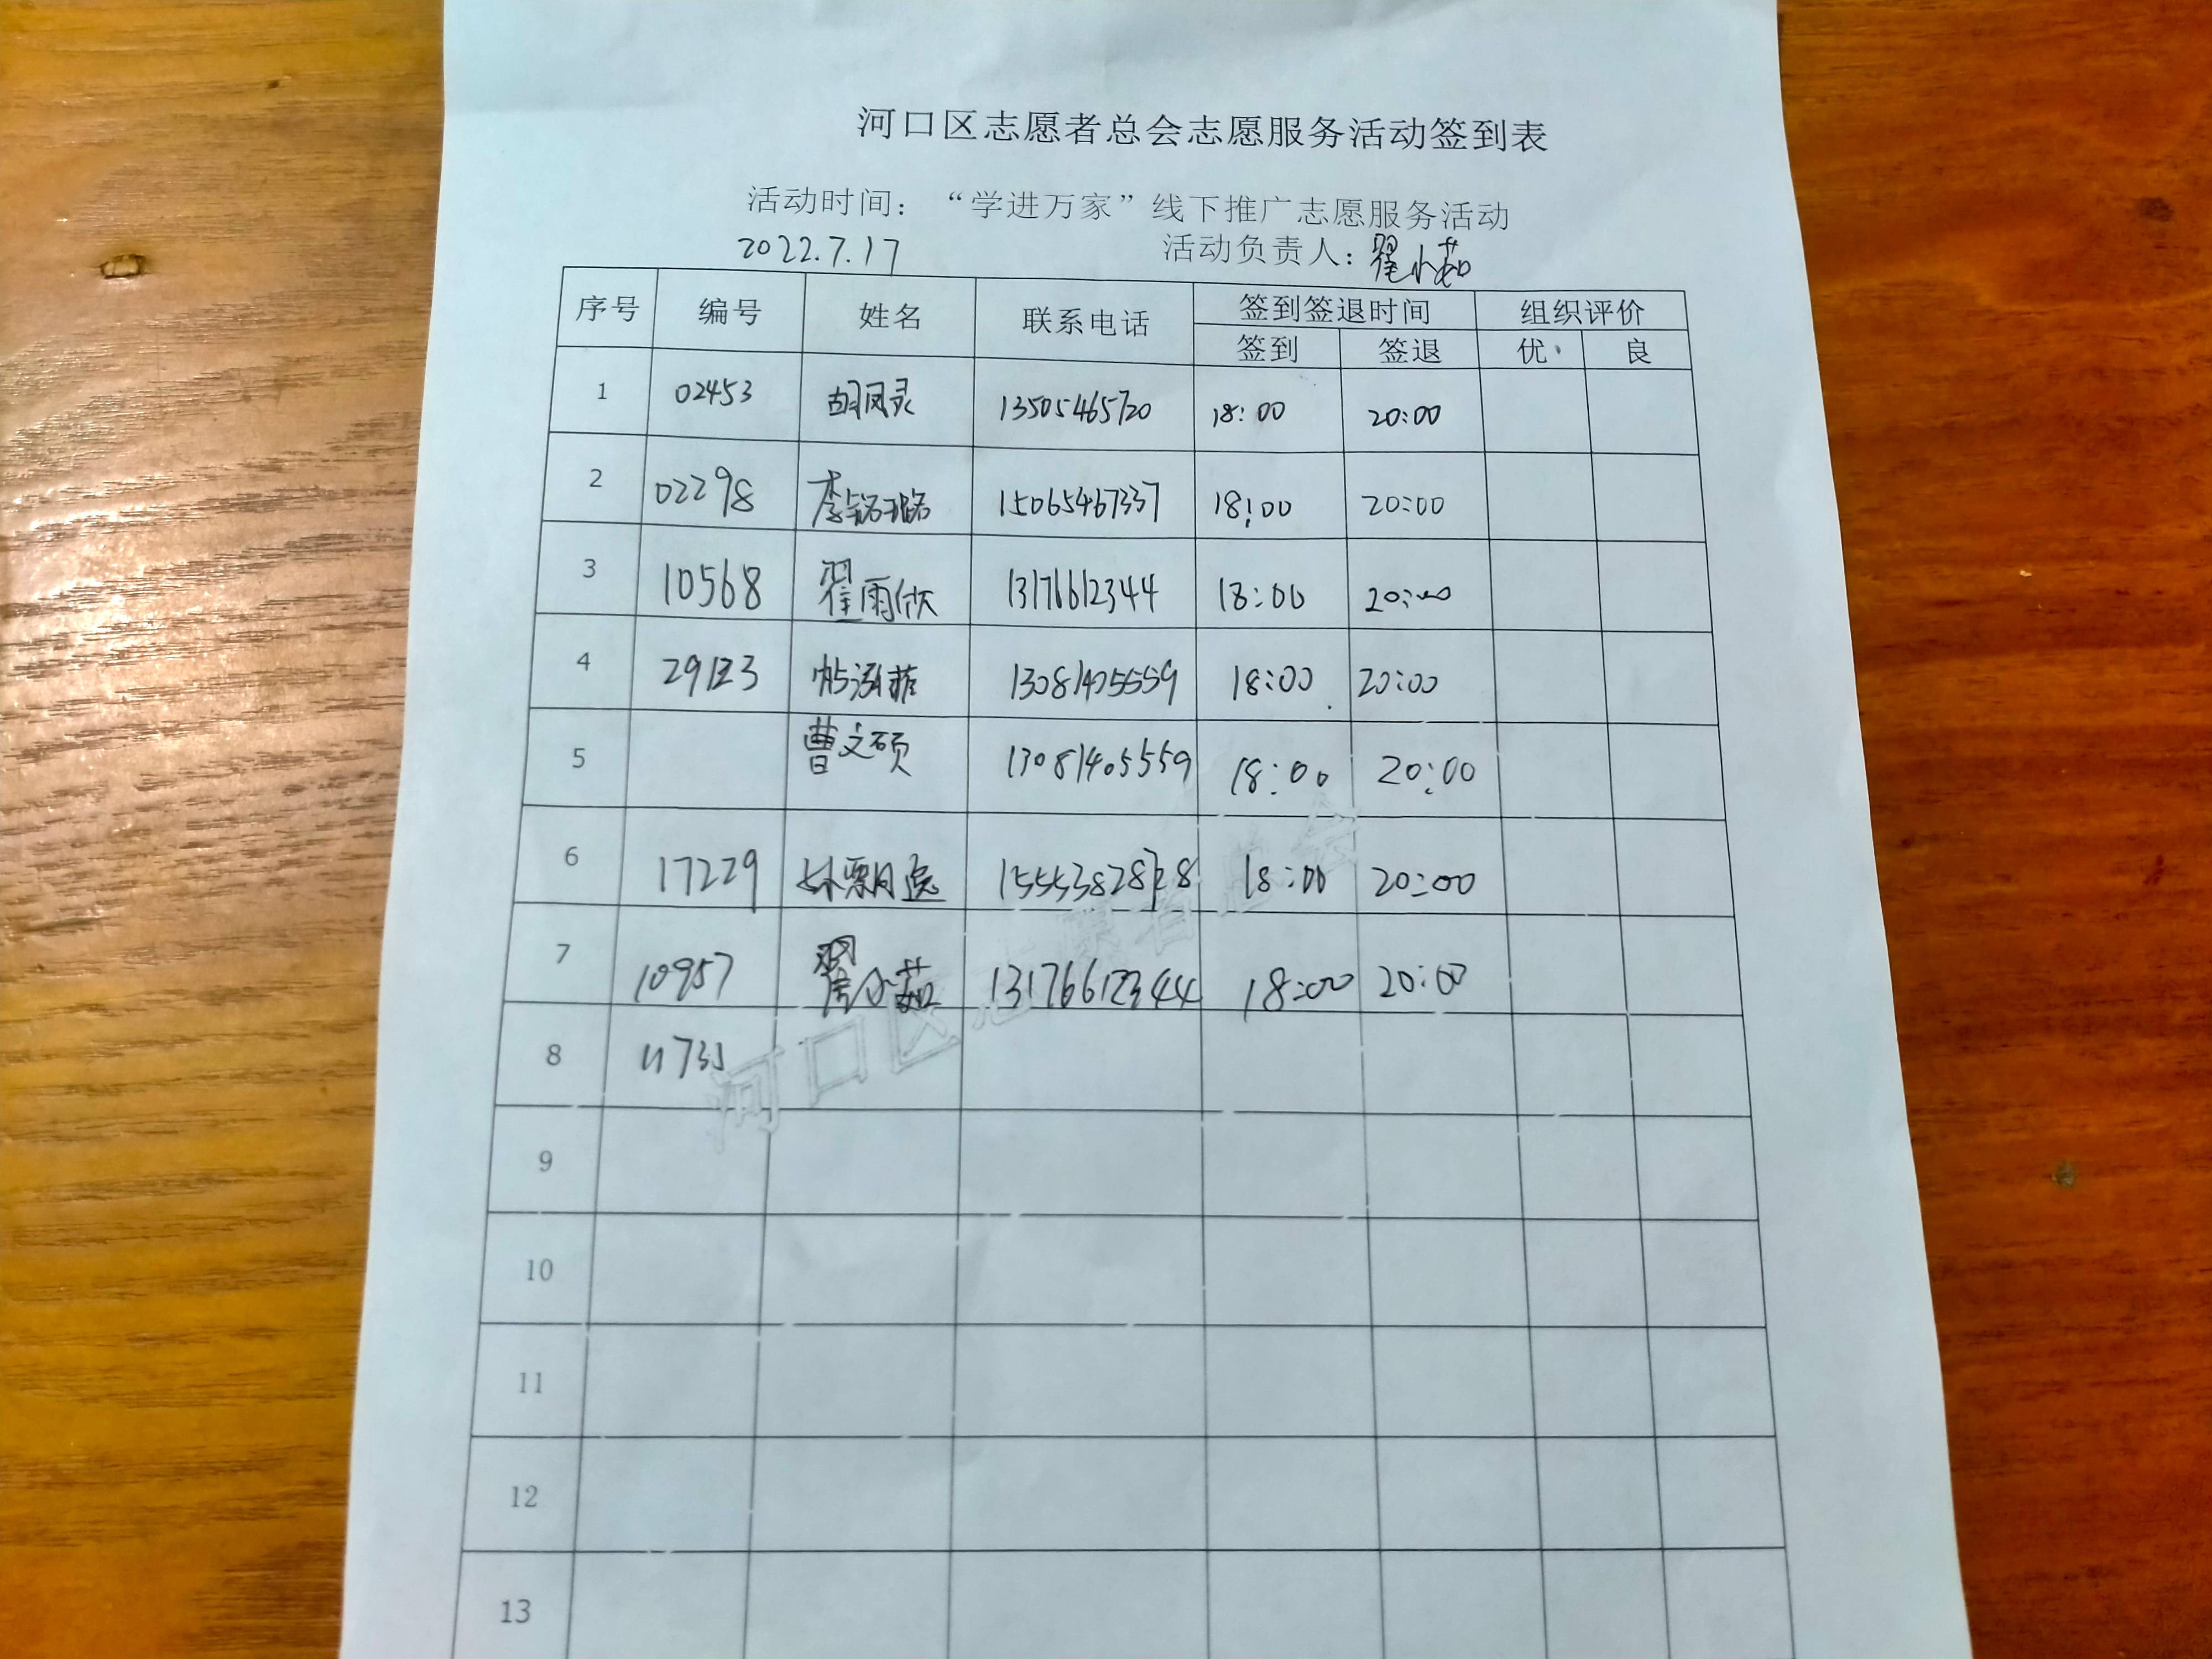 河口区志愿者总会志愿服务活动签到表
活动时间：“学进万家”线下推广志愿服务活动
2022.7.17 活动负责人：翟小茹
序号 编号 姓名 联系电话 签到签退时间 组织评价
签到 签退 优 良
1 02453 胡凤灵 13505465720 18:00 20:00
2 02298 李铭璐 15065467337 18:00 20:00
3 10568 翟雨欣 13176612344 18:00 20:00
4 29123 13081405559 18:00 20:00
5 曹文硕 13081405559 18:00 20:00
6 17229 18:00 20:00
7 10957 翟小茹 13176612344 18:00 20:00
8 11735
9
10
11
12
13
河口区志愿者总会